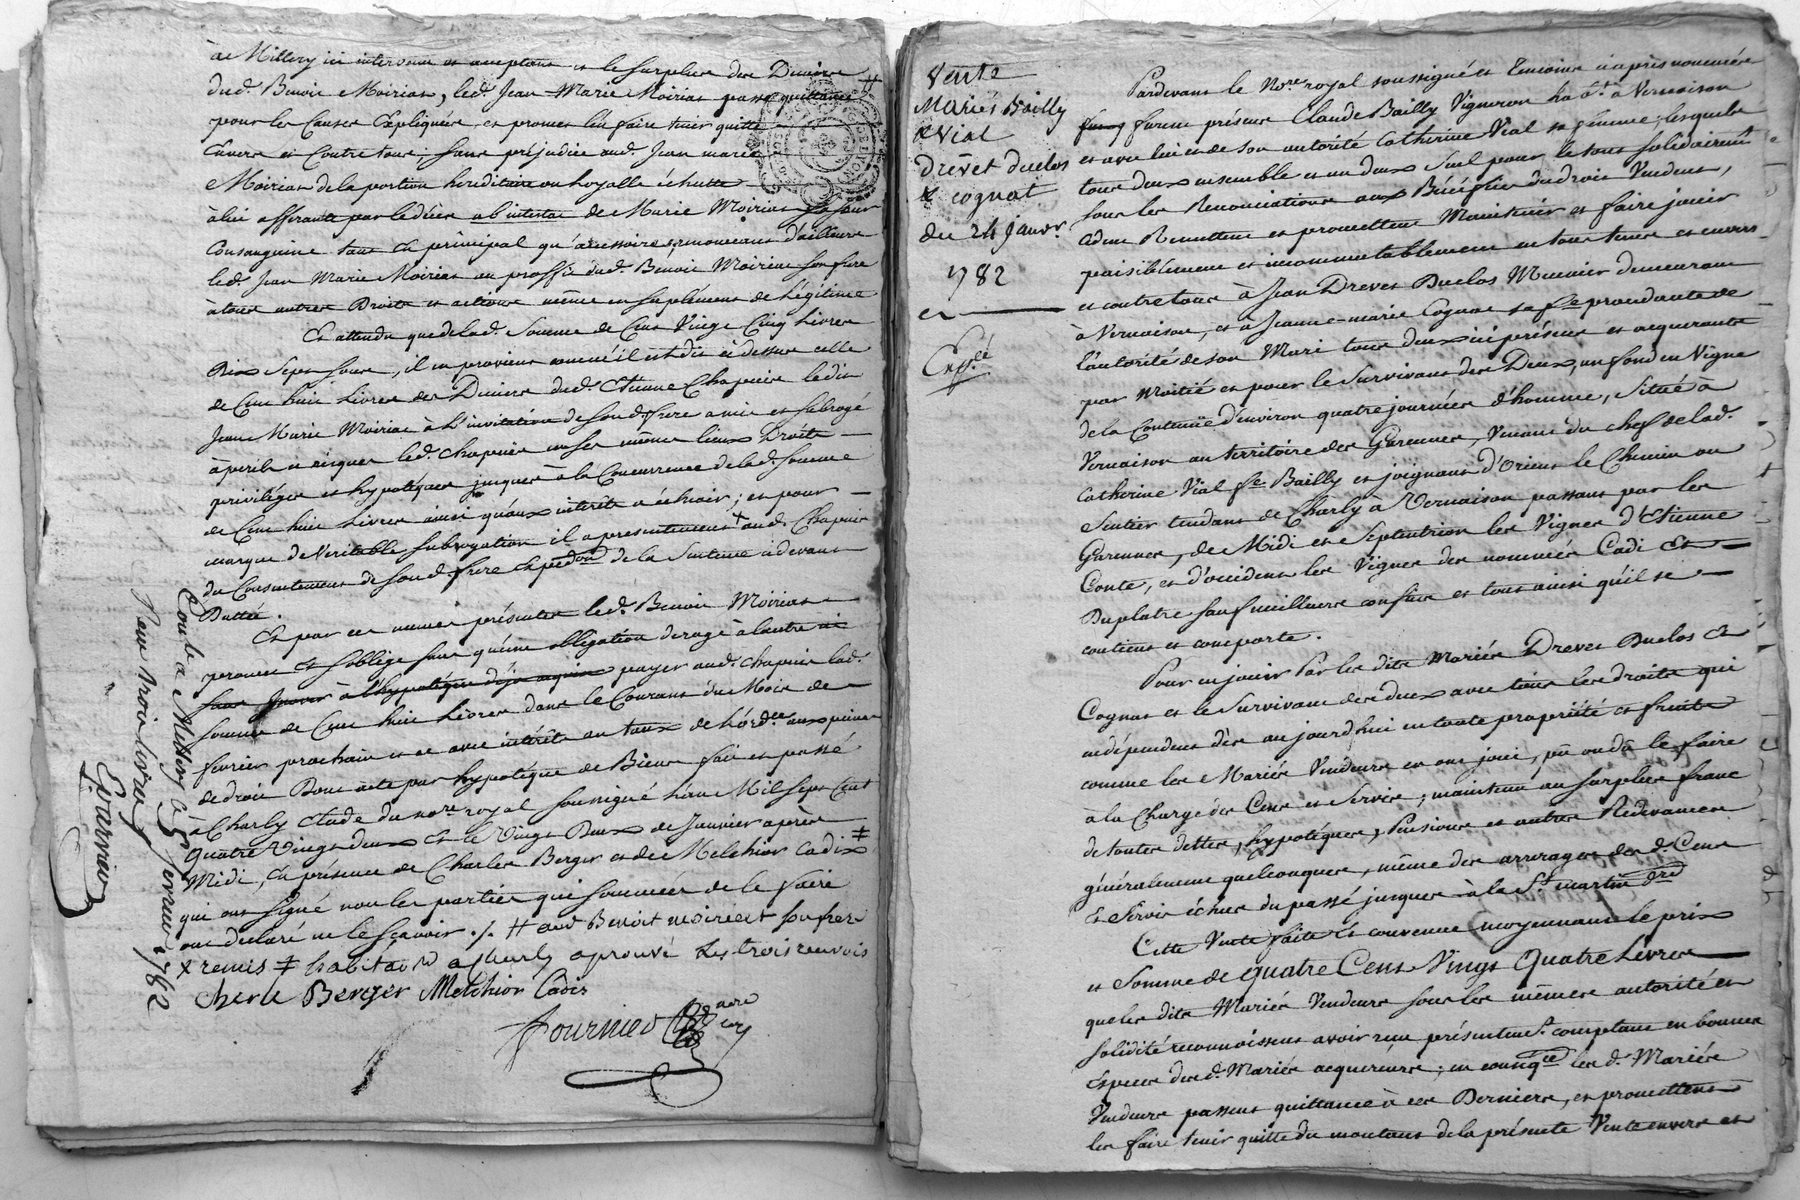 à Millery ici intervenu et acceptant et le surplus des Deniers
dud. Benoit Moiriat, led. Jean Marie Moiriat passe quittance #
pour les Causes Expliquées, et promet l'en faire tenir quitte
Envers et Contre tous; sans préjudice aud. Jean marie
Moiriat de la portion hereditaire ou Royalle échutte
à lui afferante par le décès ab intestat de Marie Moiriat sa sœur
Consanguine tant en principal qu'accessoires; renonceant d'ailleurs
led. Jean Marie Moiriat au proffit dud. Benoit Moiriat son frere
à tous autres Droits et actions même en suplément de Légitime
Et attendu que de lad. Somme de Cent Vingt Cinq Livres
Dix Sept Sous, il en provient comme il est dit ci dessus celle
de Cent huit Livres des Deniers dud. Etienne Chapuis ledit
Jean Marie Moiriat à l'invitation de sond. frere a mis et subrogé
à périls et risques led. Chapuis en ses mêmes lieux Droits
priviléges et hypotéques jusques à la Concurrence de lad. somme
de Cent huit Livres ainsi qu'aux intérêts a échoir; et pour
marque de Veritable subrogation il a presentement + aud. Chapuis
du Consentement de sond. frere expedon de la Sentence cidevant
Dattée.
Et par ces memes présentes led. Benoit Moiriat
promet et s'oblige sans qu'une obligation deroge à l'autre ni
sans Innover à l'hypotéque déja acquise payer aud. Chapuis lad.
somme de Cent huit Livres dans le Courant du Mois de
fevrier prochain et ce avec intérêts au taux de l'ordce aux peines
de droit Dont acte par hypotéque de Biens fait et passé
à Charly Etude du nore royal soussigné L'an Mil Sept Cent
Quatre Vingt deux Et le Vingt Deux de Janvier apres
Midi, En présence de Charles Berger et de Melchior Cadix ‡
qui ont signé non les parties qui sommées de le faire
ont declaré ne le sçavoir ./. # aud Benoit moiriat son frere
+ remis ‡ habitans a Charly aprouvé Les trois renvois
cherle Berger Melchior Cadix
fournier nore
Conlé a Millery Ce 5 fevrier 1782
Reçu trois livres
Vente
Mariés Bailly
& Vial
à
Drevet Duclos
& cognat
du 24 Janvr.
1782
Expé.
Pardevant le Nore royal soussigné et Temoins ci après nommés
furent présens Claude Bailly Vigneron habt. à Vernaison
et avec lui et de son autorité Catherine Vial sa femme; lesquels
tous deux ensemble et un deux seul pour le tout solidairemt
sous les Renonciations aux Bénéfices du droit Vendent,
cedent Remettent et promettent Maintenir et faire jouir
paisiblement et incommutablement en tous tems et envers
et contre tous à Jean Drevet Duclos Meunier demeurant
à Vernaison, et à Jeanne-marie Cognat sa fe procedante de
l'autorité de son Mari tous deux ici présens et acquerants
par moitié et pour le Survivant des Deux, un fond en Vigne
de la Contenüe d'environ quatre journées d'homme, situé a
Vernaison au territoire des Garennes, Venant du chef de lad.
Catherine Vial fe Bailly et joignant d'Orient le Chemin ou
Sentier tendant de Charly à Vernaison passant par les
Garennes, de Midi et Septentrion les Vignes d'Etienne
Conte, et d'occident les Vignes des nommés Cadi et
Duplatre sauf meilleurs confins et tout ainsi qu'il se
contient et comporte.
Pour en jouir Par les dits Mariés Drevet Duclos et
Cognat et le Survivant des deux avec tous les droits qui
en dépendent dès aujourd'hui en toute propriété et fruits
comme les Mariés Vendeurs en ont joui, pû ou dû le faire
à la Charge des Cens et Servis; maintenu au surplus franc
de toutes dettes, hypotéques, Pensions et autres Redevances
généralement quelconques, même des arrerages des d. Cens
et Servis échus du passé jusques à la St martin dre
Cette Vente faite et convenue moyennant le prix
et Somme de quatre Cent Vingt Quatre Livres
que les dits Mariés Vendeurs sous les mêmes autorité et
solidité reconnoissent avoir reçu présentemt. comptant en bonnes
Especes des d. Mariés acquereurs; en consqce les d. Mariés
Vendeurs passent quittance à ces Derniers, et promettent
les faire tenir quitte du montant de la présente Vente envers et